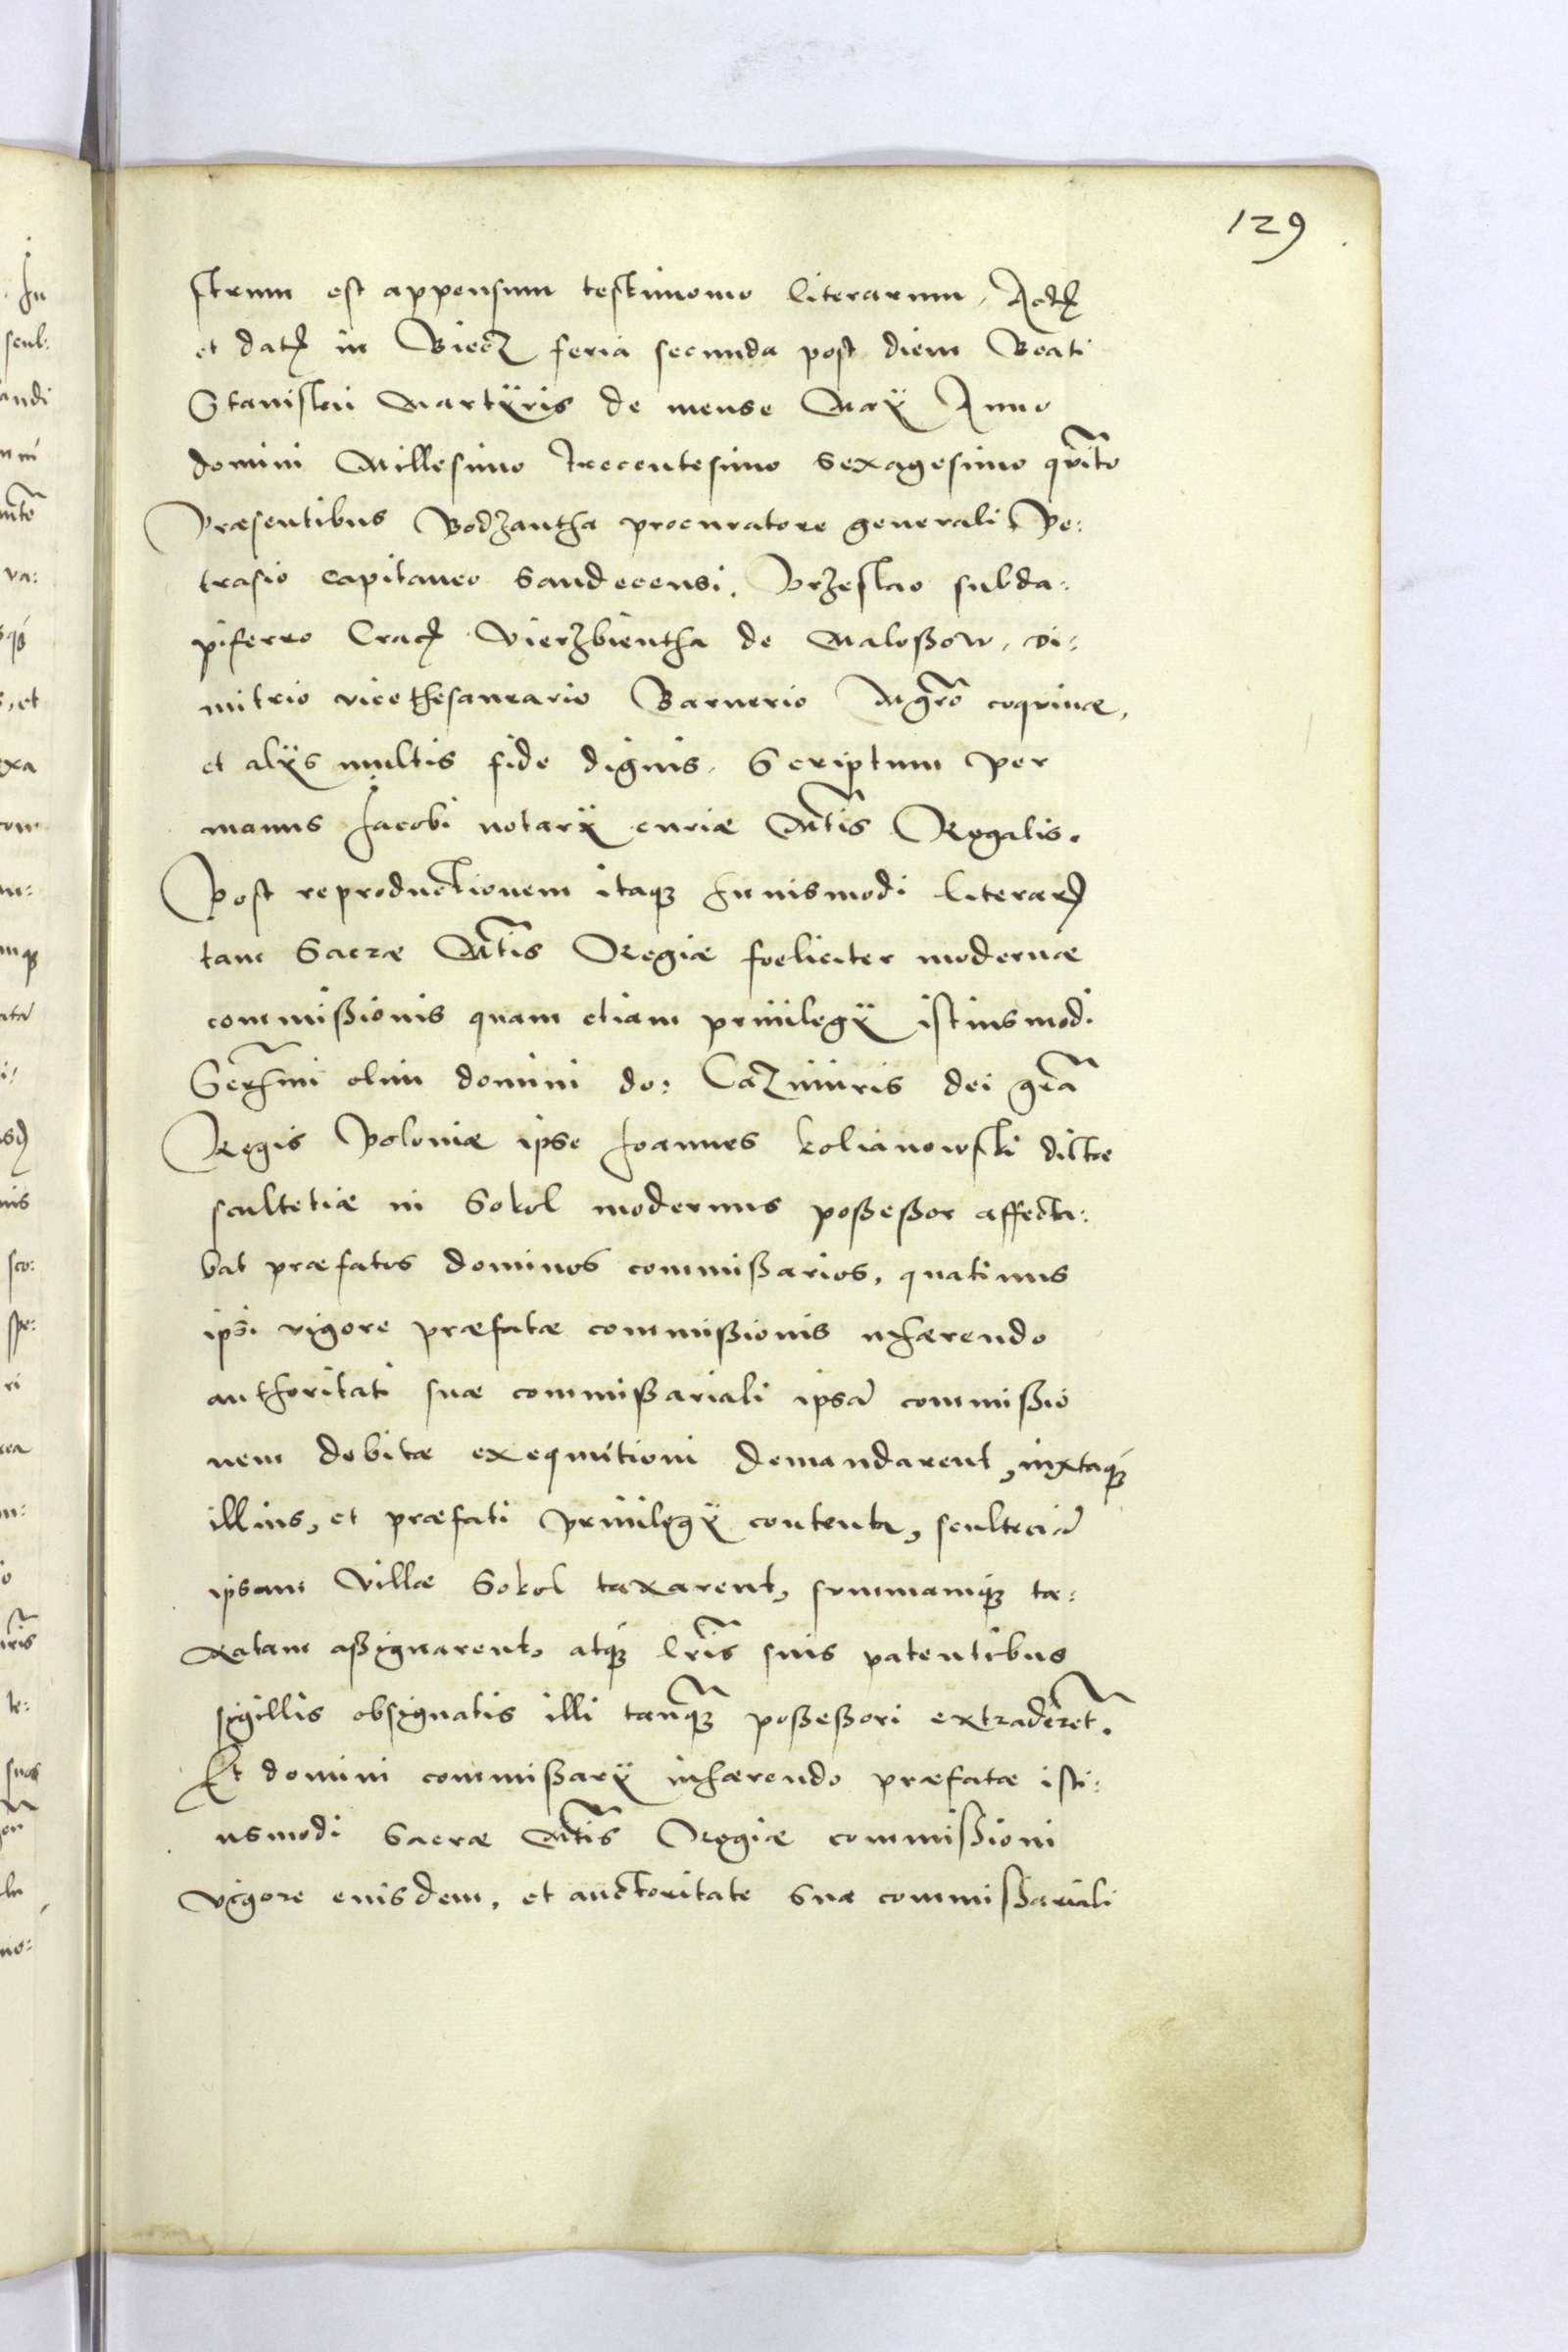 129
strum est appensum testimonio literarum, Act
et dat in Biecz feria secunda post diem Beati
Stanislai Martÿris de mense Maÿ Anno
domini Millesimo trecentesimo sexagesimo qũito
Præsentibus Bodzantha procuratore generali, Pe:
trasio capitaneo Sandecensi, Przeslao subda:
pifero Crac Vierzbientha de Maloßow, Di:
mitrio vicethesaurario Barnerio Mgro coquinæ,
et alÿs multis fide dignis, Scriptum per
manus Jacobi notarÿ curiæ Mtis Regalis.
Post reproductionem itaq huiusmodi literar
tam Sacræ Mtis Regiæ foeliciter modernæ
commißionis quam etiam priuilegÿ istiusmodi
Serssmi olim domini do: Cazimiris dei gra
Regis Poloniæ ipse Joannes kolianowski dictæ
scultetiæ in Sokol modernus poßeßor affecta:
bat præfatos dominos commißarios, quatinus
ipsi vigore præfatæ commißionis inhærendo
authoritati suæ commißariali ipsã commißio
nem debitæ exequutioni demandarent, iuxtaq
illius, et præfati priuilegÿ contenta, scultetiã
ipsam Villæ Sokol taxarent, summamq ta:
xatam aßignarent, atq lris suis patentibus
sigillis obsignatis illi tanq poßeßori extraderet.
Et domini commißarÿ inhærendo præfatæ isti:
usmodi Sacræ Mtis Regiæ commißioni
vigore eiusdem, et auctoritate sua commißariali